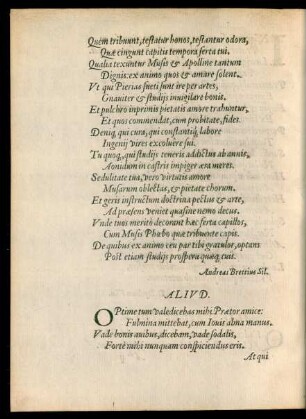 Quem tribuunt, testatur honos, testantur odora,
Quæ cingunt capitis tempora serta tui.
Qualia texuntur Musis & Apolline tantum
Dignis: ex animo quos & amare solent.
Vt qui Pierias sueti sunt ire per artes,
Gnauiter & studijs inuigilare bonis.
Et pulchro inprimis pietatis amore trahuntur,
Et quos commendat, cum probitate, fides.
Deniq, qui cura, qui constantiq, labore
Ingenij vires excoluere sui.
Tu quoq, qui studijs teneris addictus ab annis,
Aonidum in castris impiger æra meres.
Sedulitate tua, vero virtutis amore
Musarum oblectas, & pietate chorum.
Et geris instructum doctrina pectus & arte,
Ad præsens veniet quasine nemo decus.
Vnde tuos merito decorant hæc serta capillos,
Cum Musis Phœbo quæ tribuente capis.
De quibus ex animo ceu par tibi gratulor, optans
Post etiam studijs prospera quæq, tuis.
Andreas Brettius Sil.
ALIVD.
OPtime tum valedicebas mihi Prætor amice:
Fulmina mittebat, cum Iouis alma manus.
Vade bonis auibus, dicebam, vade sodalis,
Forte mihi nunquam conspiciendus eris.
At qui